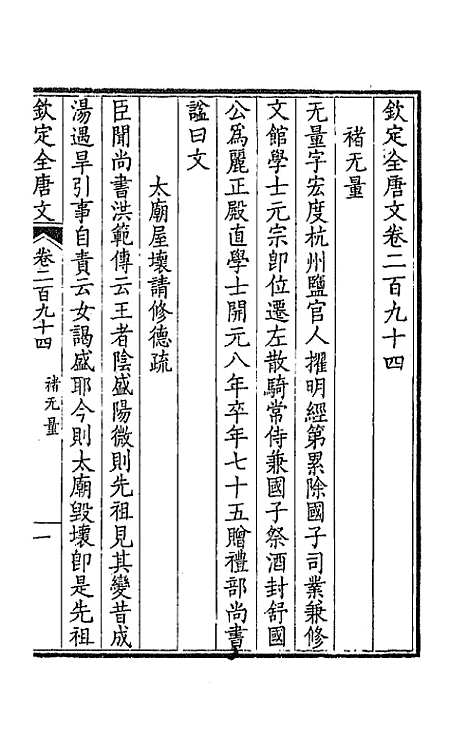 欽定全唐文卷二百九十四
褚无量
无量字宏度杭州鹽官人擢明經第累除國子司業兼修
文館學士元宗卽位遷左散騎常侍兼國子祭酒封舒國
公爲麗正殿直學士開元八年卒年七十五贈禮部尚書
謚曰文
太廟屋壞請修德疏
臣聞尚書洪範傳云王者陰盛陽微則先祖見其變昔成
湯遇旱引事自責云女謁盛耶今則太廟毀壞卽是先祖
欽定全唐文
卷二百九十四
褚无量
一